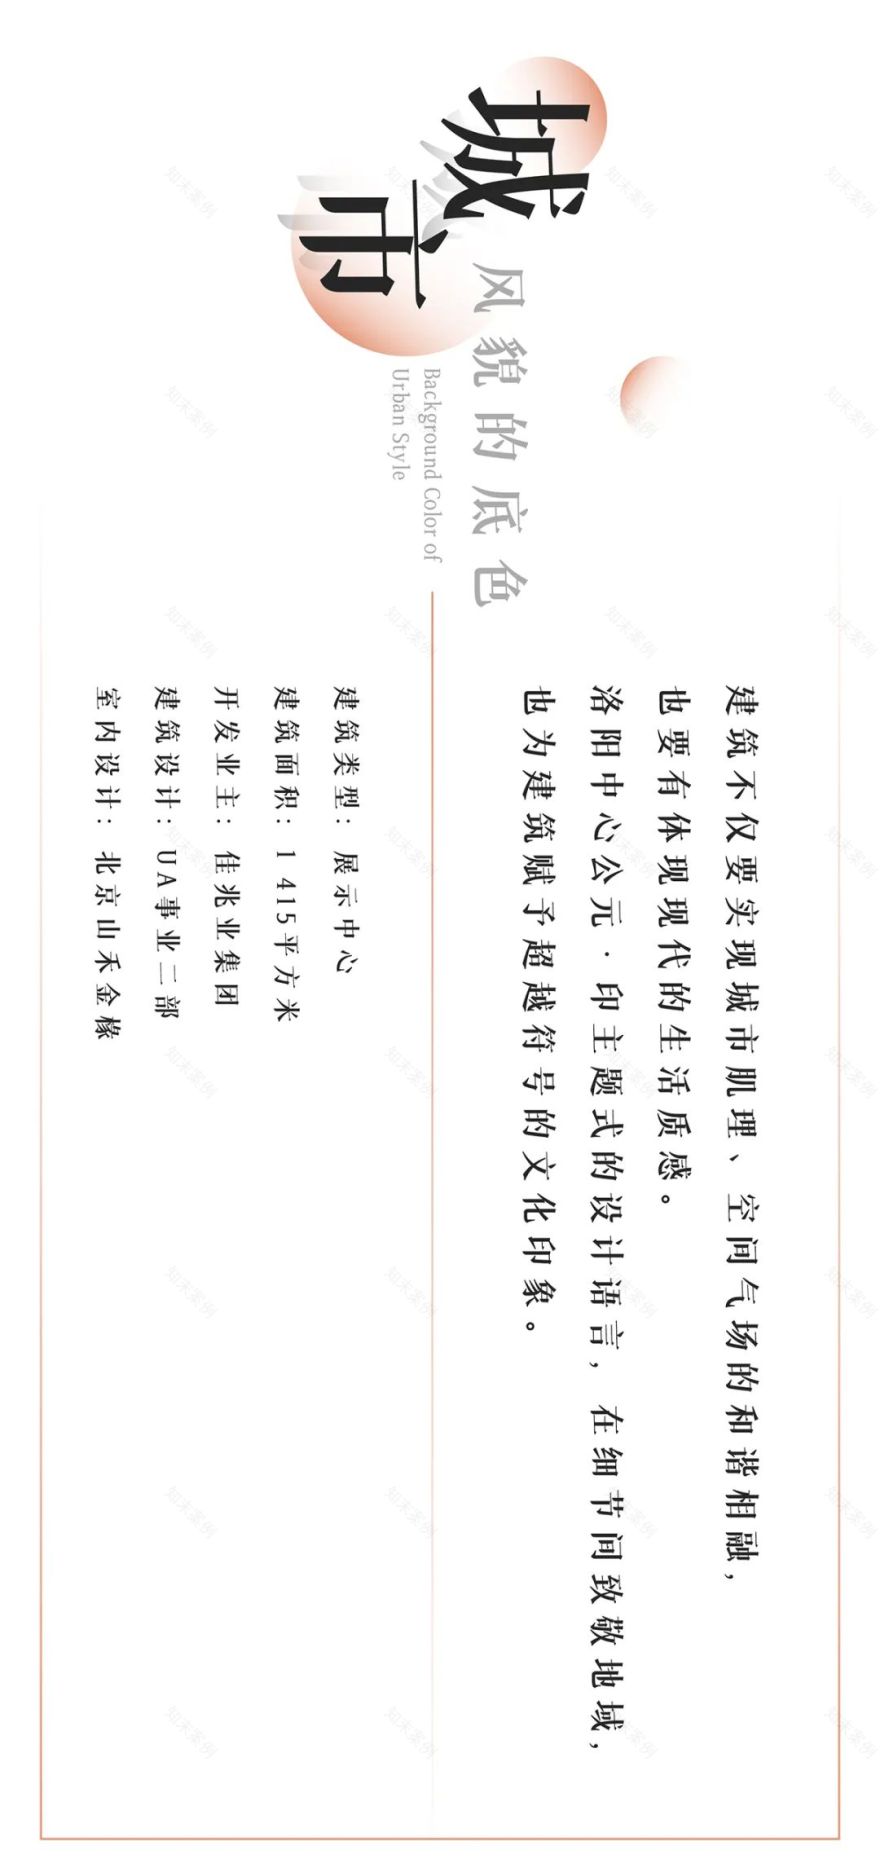 城市
风貌的底色
Background Color of
Urban Style
建筑不仅要实现城市肌理、空间气场的和谐相融，
也要有体现现代的生活质感。
洛阳中心公元·印主题式的设计语言，在细节间致敬地域，
也为建筑赋予超越符号的文化印象。
建筑类型：展示中心
建筑面积：1 415平方米
开发业主：佳兆业集团
建筑设计：UA事业二部
室内设计：北京山禾金橼
知末案例